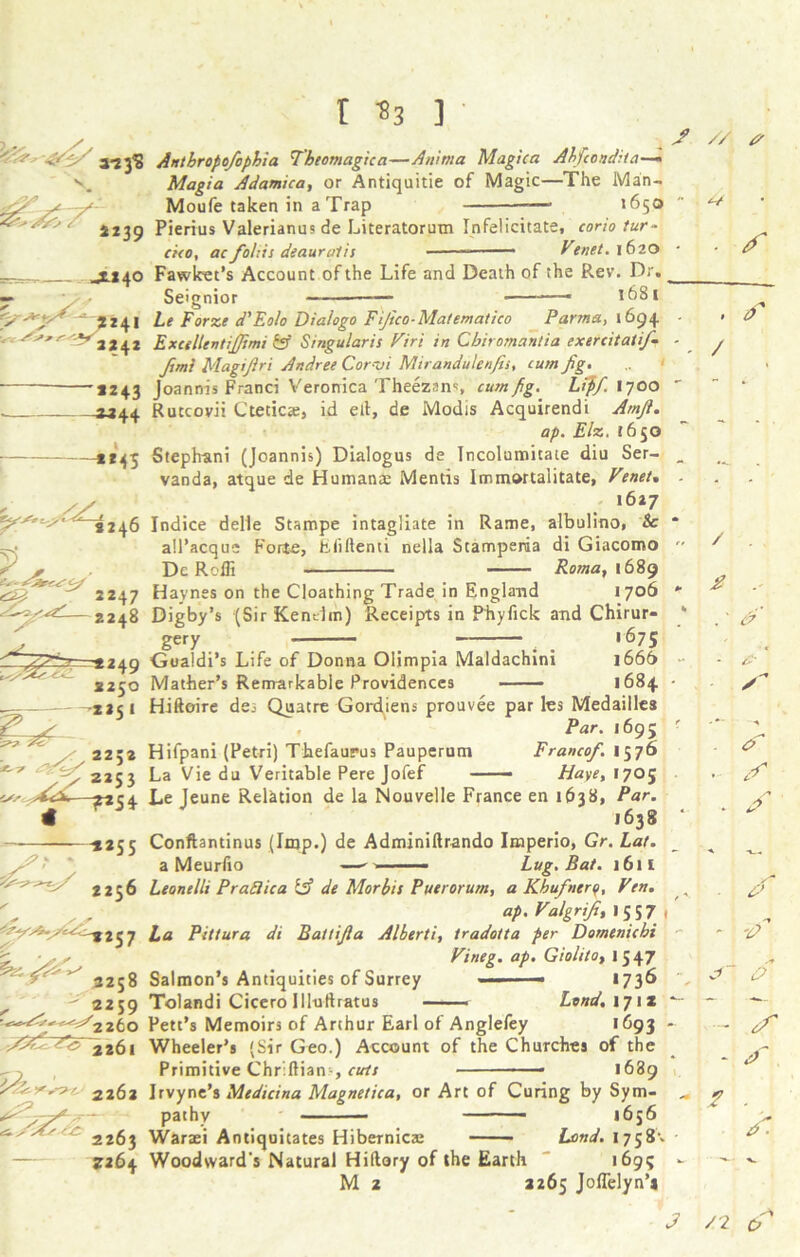 [ 83 ]
2238 Anthropoſophia Theomagica—Anima Magica Abſcondita—
Magia Adamica, or Antiquitie of Magic—The Man-
Mouſe taken in a Trap ——— 1650
2239 Pierius Valerianus de Literatorum Infelicitate, corio tur-
cico, ac foliis deauratis ——— Venet. 1620
2240 Fawket's Account of the Life and Death of the Rev. Dr.
Seignior ——— ——— 1681
2241 Le Forze d'Eolo Dialogo Fiſico-Matematico Parma, 1694
2242 Excellentiſſimi & Singularis Viri in Chiromantia exercitatiſ-
ſimi Magiſtri Andree Corvi Mirandulenſis, cum fig.
2243 Joannis Franci Veronica Theézans, cum fig. Lipſ. 1700
2244 Rutcovii Cteticæ, id eſt, de Modis Acquirendi Amſt.
ap. Elz. 1650
2245 Stephani (Joannis) Dialogus de Incolumitate diu Ser-
vanda, atque de Humanæ Mentis Immortalitate, Venet.
1627
2246 Indice delle Stampe intagliate in Rame, albulino, &
all'acque Forte, Eſiſtenti nella Stamperia di Giacomo
De Roſſi ——— ——— Roma, 1689
2247 Haynes on the Cloathing Trade in England 1706
2248 Digby's (Sir Kenelm) Receipts in Phyſick and Chirur-
gery ——— ——— 1675
2249 Gualdi's Life of Donna Olimpia Maldachini 1666
2250 Mather's Remarkable Providences ——— 1684
2251 Hiſtoire des Quatre Gordiens prouvée par les Medailles
Par. 1695
2252 Hiſpani (Petri) Theſaurus Pauperum Francof. 1576
2253 La Vie du Veritable Pere Joſef ——— Haye, 1705
2254 Le Jeune Relation de la Nouvelle France en 1638, Par.
1638
2255 Conſtantinus (Imp.) de Adminiſtrando Imperio, Gr. Lat.
a Meurſio ——— Lug. Bat. 1611
2256 Leonelli Practica & de Morbis Puerorum, a Khufnero, Ven.
ap. Valgriſi, 1557
2257 La Pittura di Battiſta Alberti, tradotta per Domenichi
Vineg. ap. Giolito, 1547
2258 Salmon's Antiquities of Surrey ——— 1736
2259 Tolandi Cicero Illuſtratus ——— Lond. 1712
2260 Pett's Memoirs of Arthur Earl of Angleſey 1693
2261 Wheeler's (Sir Geo.) Account of the Churches of the
Primitive Chriſtians, cuts ——— 1689
2262 Irvyne's Medicina Magnetica, or Art of Curing by Sym-
pathy ——— ——— 1656
2263 Waræi Antiquitates Hibernicæ ——— Lond. 1758
2264 Woodward's Natural Hiſtory of the Earth 1695
M 2 2265 Joſſelyn's
3 12 6